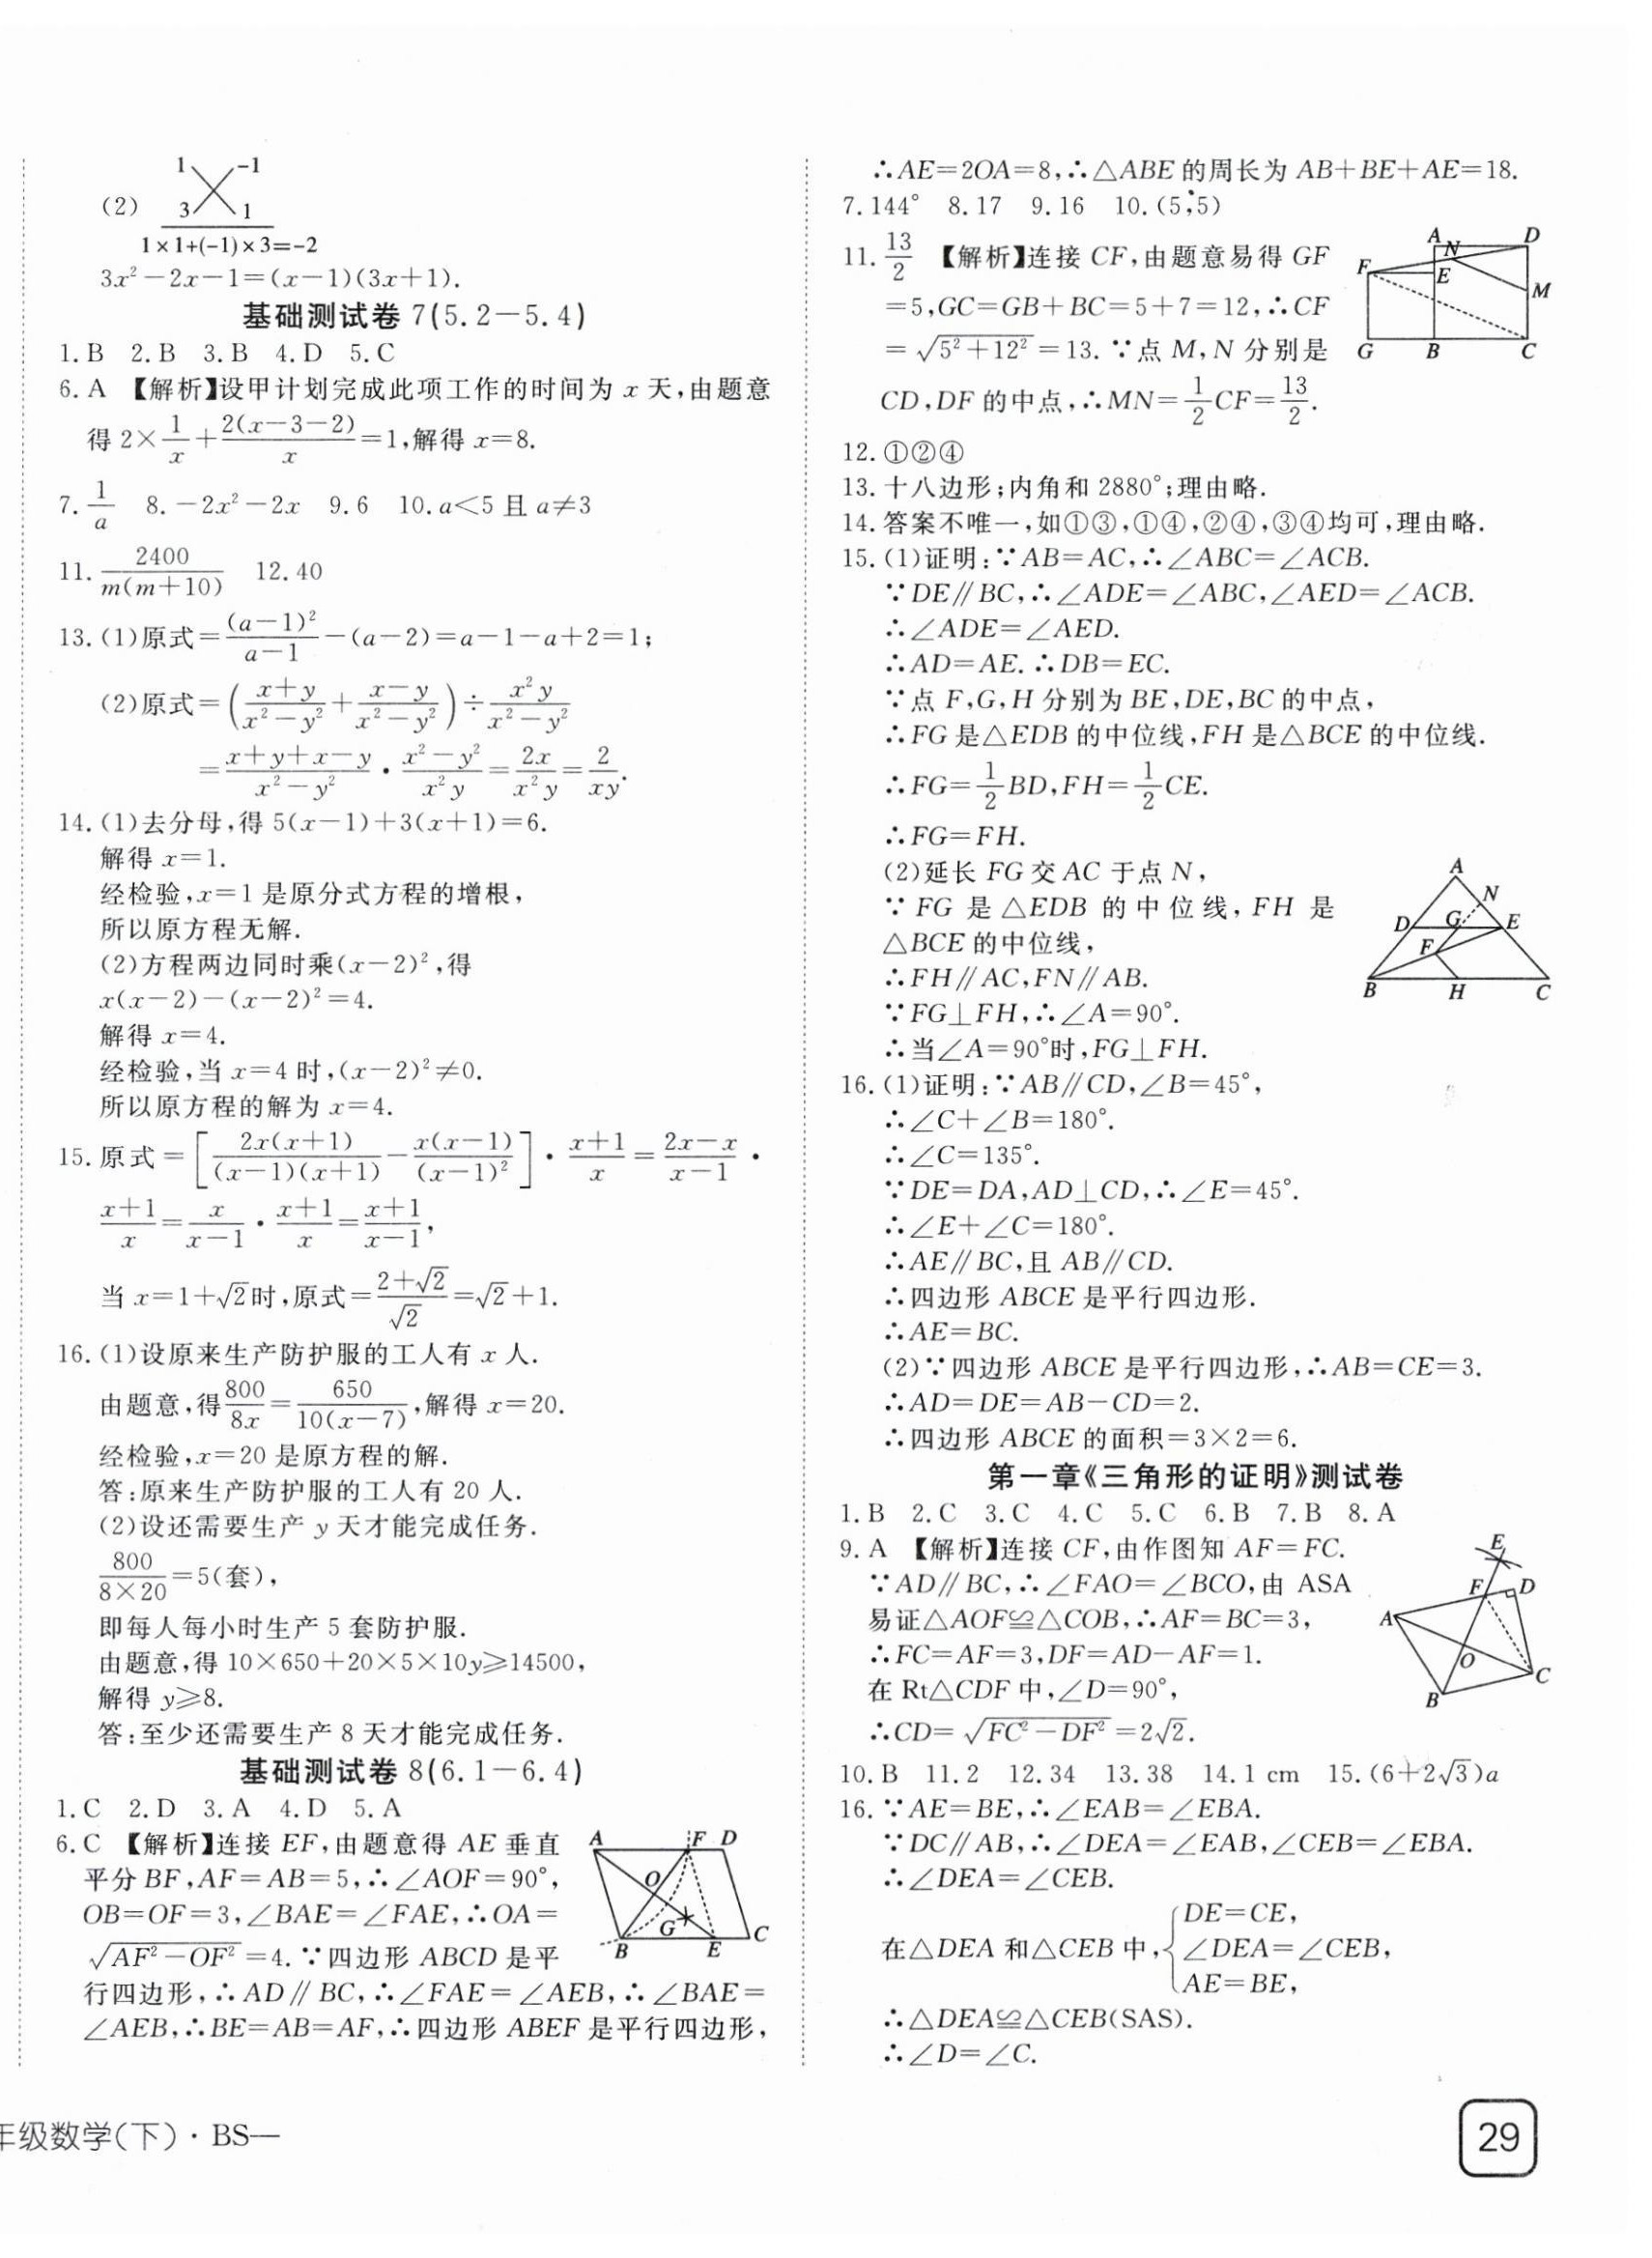 1 -1
(2) 3 1
1×1+(-1)×3=-2
3x²-2x-1=(x-1)(3x+1).
基础测试卷 7(5.2-5.4)
1.B 2.B 3.B 4.D 5.C
6.A 【解析】设甲计划完成此项工作的时间为 x 天,由题意
得 2×1/x+2(x-3-2)/x=1,解得 x=8.
7.1/a 8.-2x²-2x 9.6 10.a<5 且 a≠3
11.2400/m(m+10) 12.40
13.(1)原式=(a-1)²/(a-1)-(a-2)=a-1-a+2=1;
(2)原式=((x+y)/(x²-y²)+(x-y)/(x²-y²))÷x²y/(x²-y²)
=(x+y+x-y)/(x²-y²)·(x²-y²)/x²y=2x/x²y=2/xy.
14.(1)去分母,得 5(x-1)+3(x+1)=6.
解得 x=1.
经检验,x=1 是原分式方程的增根,
所以原方程无解.
(2)方程两边同时乘(x-2)²,得
x(x-2)-(x-2)²=4.
解得 x=4.
经检验,当 x=4 时,(x-2)²≠0.
所以原方程的解为 x=4.
15.原式=[2x(x+1)/(x-1)(x+1)-x(x-1)/(x-1)²]·(x+1)/x=(2x-x)/(x-1)·
(x+1)/x=x/(x-1)·(x+1)/x=(x+1)/(x-1),
当 x=1+√2时,原式=(2+√2)/√2=√2+1.
16.(1)设原来生产防护服的工人有 x 人.
由题意,得800/8x=650/10(x-7),解得 x=20.
经检验,x=20 是原方程的解.
答:原来生产防护服的工人有 20 人.
(2)设还需要生产 y 天才能完成任务.
800/8×20=5(套),
即每人每小时生产 5 套防护服.
由题意,得 10×650+20×5×10y⩾14500,
解得 y⩾8.
答:至少还需要生产 8 天才能完成任务.
基础测试卷 8(6.1-6.4)
1.C 2.D 3.A 4.D 5.A
6.C 【解析】连接 EF,由题意得 AE 垂直
平分 BF,AF=AB=5,∴∠AOF=90°,
OB=OF=3,∠BAE=∠FAE,∴OA=
√(AF²-OF²)=4.∵四边形 ABCD 是平
行四边形,∴AD∥BC,∴∠FAE=∠AEB,∴∠BAE=
∠AEB,∴BE=AB=AF,∴四边形 ABEF 是平行四边形,
A F D
O
G
B E C
∴AE=2OA=8,∴△ABE 的周长为 AB+BE+AE=18.
7.144° 8.17 9.16 10.(5,5)
11.13/2 【解析】连接 CF,由题意易得 GF
=5,GC=GB+BC=5+7=12,∴CF
=√(5²+12²)=13.∵点 M,N 分别是
CD,DF 的中点,∴MN=1/2CF=13/2.
A N D
F E
M
G B C
12.①②④
13.十八边形;内角和 2880°;理由略.
14.答案不唯一,如①③,①④,②④,③④均可,理由略.
15.(1)证明:∵AB=AC,∴∠ABC=∠ACB.
∵DE∥BC,∴∠ADE=∠ABC,∠AED=∠ACB.
∴∠ADE=∠AED.
∴AD=AE.∴DB=EC.
∵点 F,G,H 分别为 BE,DE,BC 的中点,
∴FG 是△EDB 的中位线,FH 是△BCE 的中位线.
∴FG=1/2BD,FH=1/2CE.
∴FG=FH.
(2)延长 FG 交 AC 于点 N,
∵FG 是△EDB 的中位线,FH 是
△BCE 的中位线,
∴FH∥AC,FN∥AB.
∵FG⊥FH,∴∠A=90°.
∴当∠A=90°时,FG⊥FH.
A
N
D G E
F
B H C
16.(1)证明:∵AB∥CD,∠B=45°,
∴∠C+∠B=180°.
∴∠C=135°.
∵DE=DA,AD⊥CD,∴∠E=45°.
∴∠E+∠C=180°.
∴AE∥BC,且 AB∥CD.
∴四边形 ABCE 是平行四边形.
∴AE=BC.
(2)∵四边形 ABCE 是平行四边形,∴AB=CE=3.
∴AD=DE=AB-CD=2.
∴四边形 ABCE 的面积=3×2=6.
第一章《三角形的证明》测试卷
1.B 2.C 3.C 4.C 5.C 6.B 7.B 8.A
9.A 【解析】连接 CF,由作图知 AF=FC.
∵AD∥BC,∴∠FAO=∠BCO,由 ASA
易证△AOF≌△COB,∴AF=BC=3,
∴FC=AF=3,DF=AD-AF=1.
在 Rt△CDF 中,∠D=90°,
∴CD=√(FC²-DF²)=2√2.
E
F D
A
O
C
B
10.B 11.2 12.34 13.38 14.1 cm 15.(6+2√3)a
16.∵AE=BE,∴∠EAB=∠EBA.
∵DC∥AB,∴∠DEA=∠EAB,∠CEB=∠EBA.
∴∠DEA=∠CEB.
DE=CE,
在△DEA 和△CEB 中,{∠DEA=∠CEB,
AE=BE,
∴△DEA≌△CEB(SAS).
∴∠D=∠C.
年级数学(下)·BS—
29